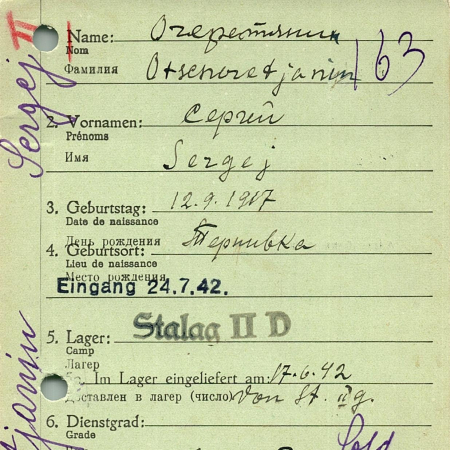 II
Name: Очеретянин
Nom
Фамилия Otscheretjanin 163
2. Vornamen: Сергій
Prénoms
Имя Sergej
Sergej
3. Geburtstag: 12.9.1917
Date de naissance
День рождения
4. Geburtsort: Тернивка
Lieu de naissance
Место рождения
Eingang 24.7.42.
5. Lager: Stalag II D
Camp
Лагер
5a. Im Lager eingeliefert am: 17.6.42
Доставлен в лагер (число) von St. II g.
6. Dienstgrad: Sold
Grade
tjanin